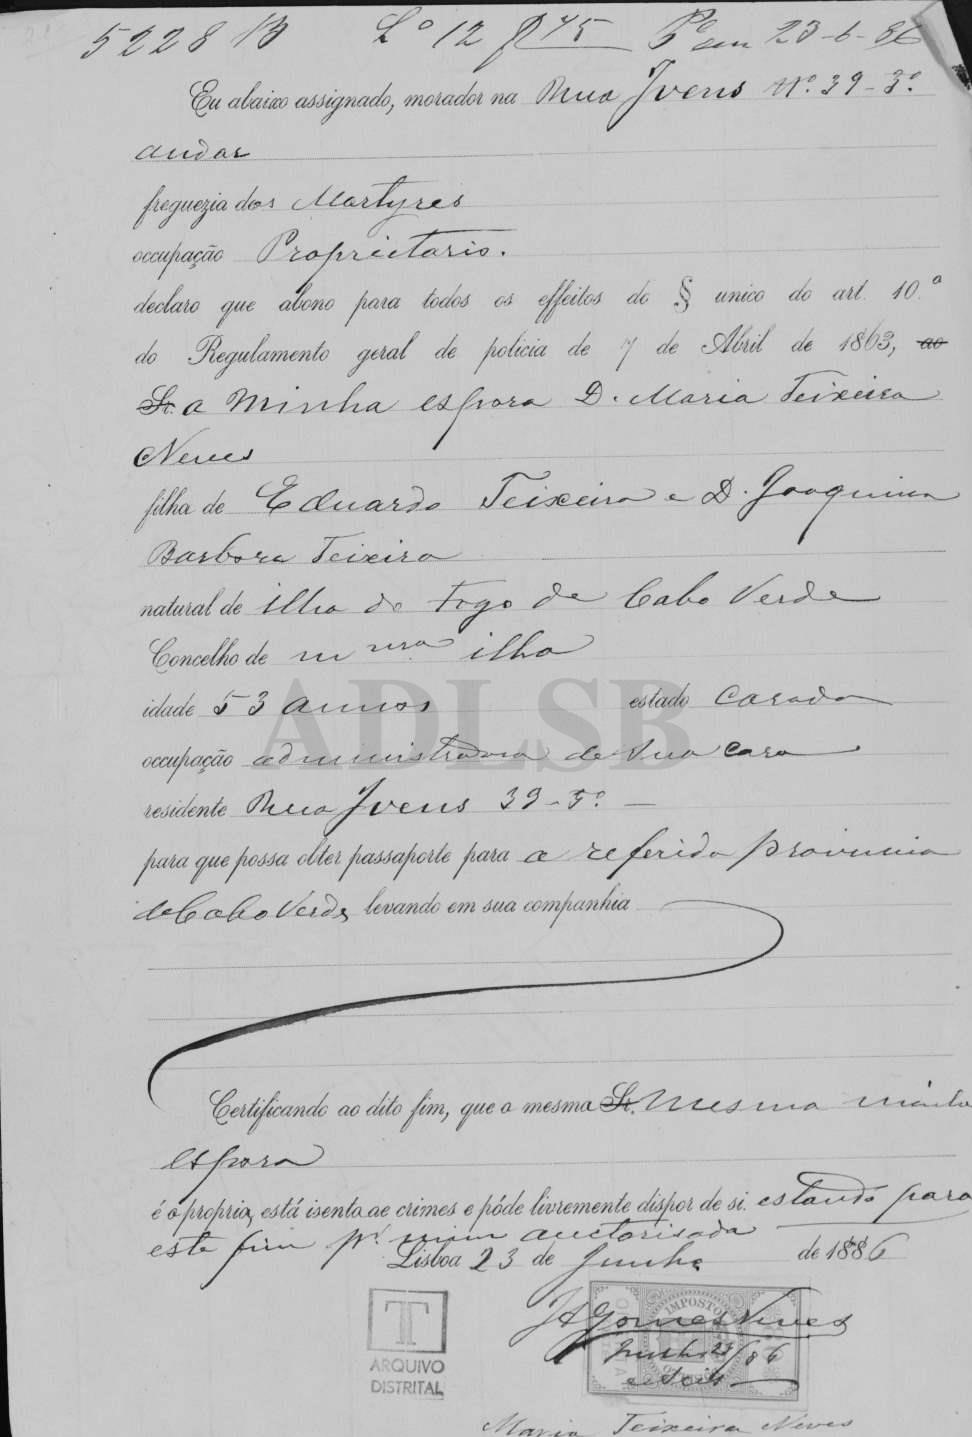 5228 B Lº 12 f 45 Pº em 23-6-86
Eu abaixo assignado, morador na Rua Ivens Nº. 39-3º.
andar
freguezia dos Martyres
occupação Proprietario.
declaro que abono para todos os effeitos do § unico do art. 10.º
do Regulamento geral de policia de 7 de Abril de 1863, ao
Sr. a Minha espoza D. Maria Teixeira
Neves
filha de Eduardo Teixeira e D. Joaquina
Barboza Teixeira
natural de ilha do Fogo de Cabo Verde
Concelho de m.ma ilha
idade 53 annos estado Casada
occupação administradora de sua casa
residente Rua Ivens 39-3º.
para que possa obter passaporte para a referida provincia
de Cabo Verde, levando em sua companhia
Certificando ao dito fim, que a mesma Sr. Mesma minha
espoza
é a propria, está isenta de crimes e póde livremente dispor de si. estando para
este fim pr. mim auctorisada
Lisboa 23 de Junho de 1886
IMPOSTO
JAGomes Neves
Junho 23/86
e seis
T
ARQUIVO
DISTRITAL
Maria Teixeira Neves
ADLSB